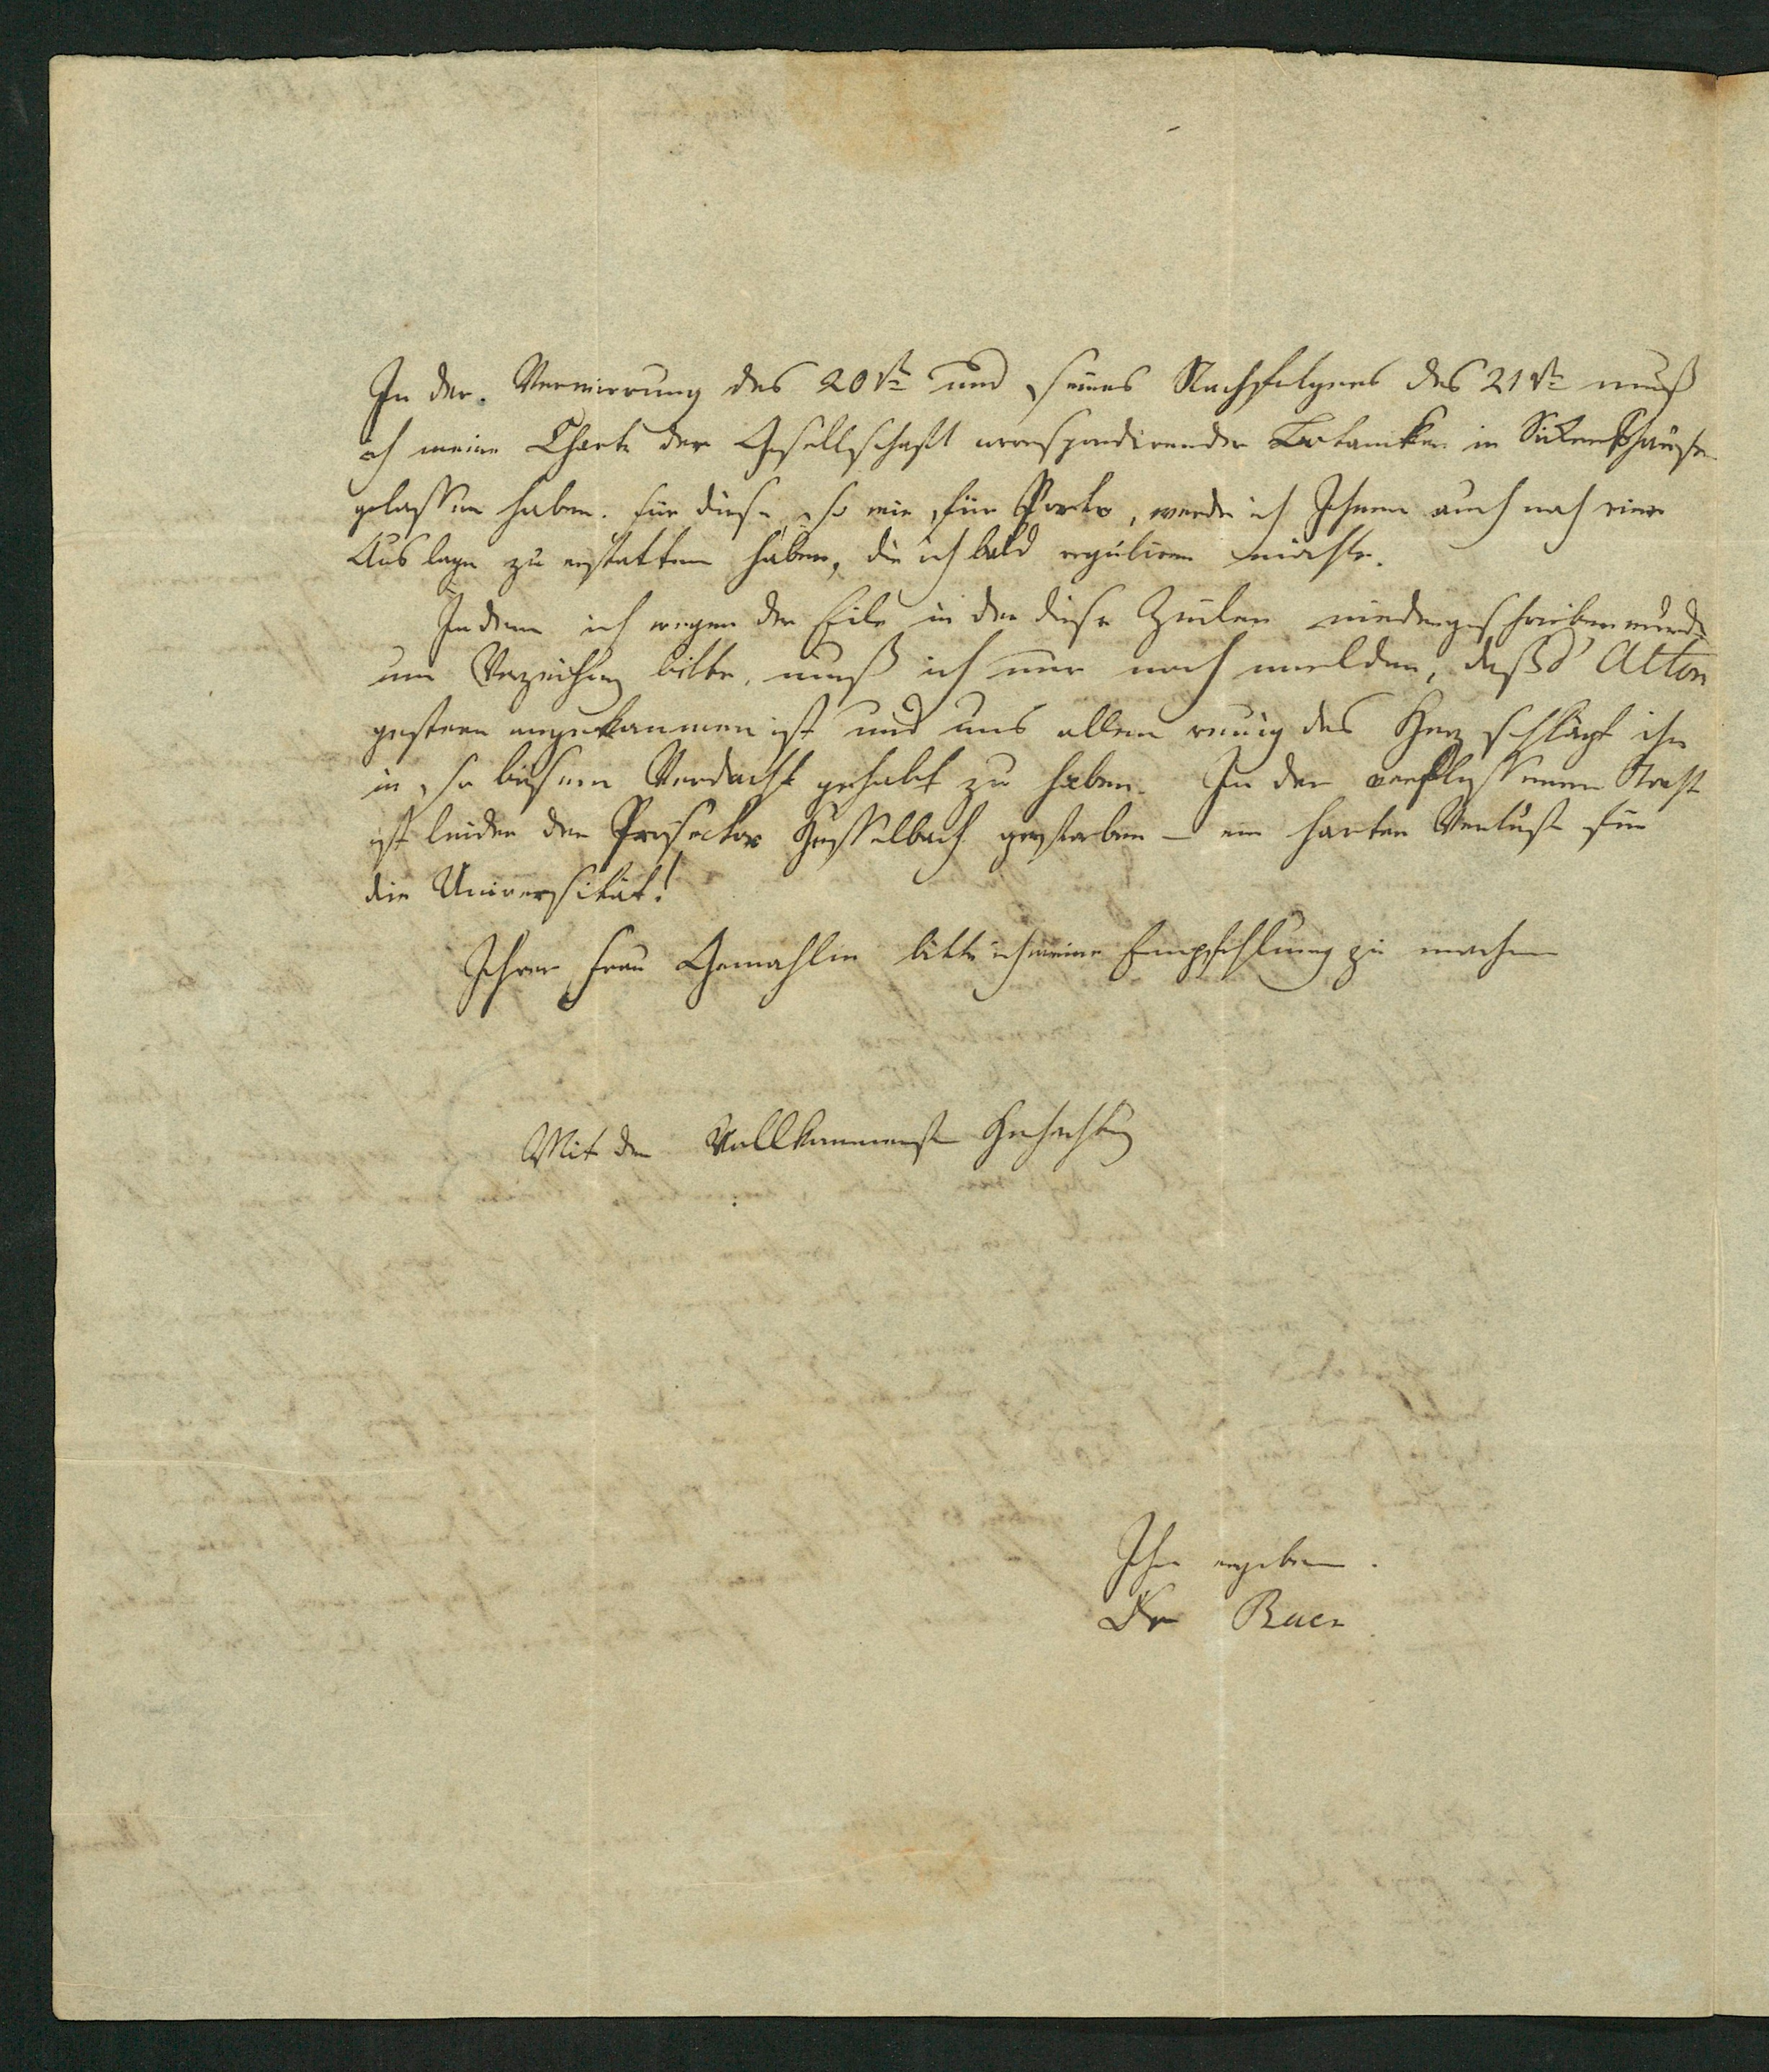 In der Verwirrung des 20st und seines Nachfolgers des 21st muß
ich meine Charte der Gesellschaft correspondirender Botaniker in Sickershausen
gelassen haben. Für diese, so wie für Porto, werde ich Ihnen auch noch eine
Auslage zu erstatten haben, die ich bald reguliren möchte.
Indem ich wegen der Eile in der diese Zeilen niedergeschrieben wurden
um Verzeihung bitte, muß ich nur noch melden, daß d'Alton
gestern angekommen ist und uns allen reuig das Herz schlägt ihn
in so bösem Verdacht gehabt zu haben. In der verflossenen Nacht
ist leider der Prosector Hesselbach gestorben – ein harter Verlust für
die Universität!
Ihrer Frau Gemahlin bitte ich meine Empfehlung zu machen
Mit der Vollkommensten Hochachtung
Ihr ergebener
Dr Baer